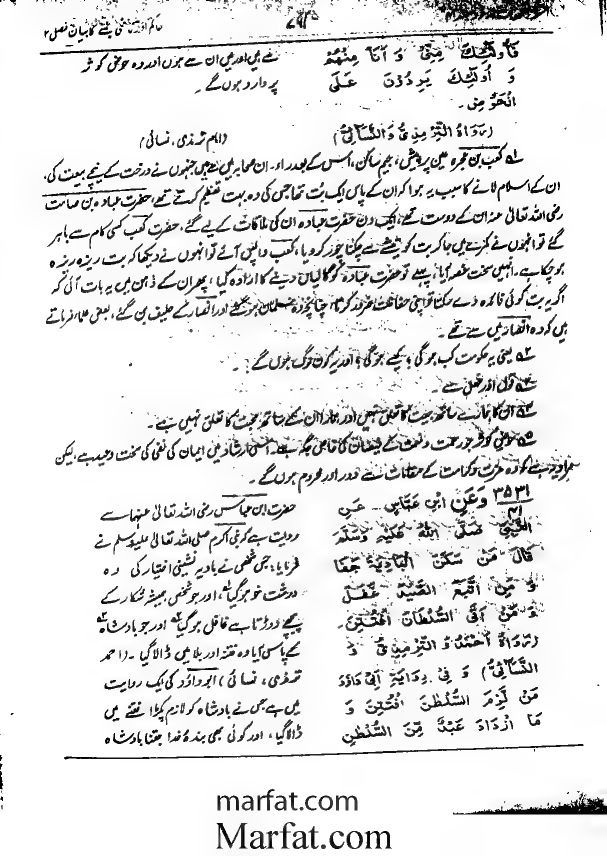 حاکم اور قاضی بننے کا بیان فصل ۲
فَأُولٰٓئِكَ مِنِّیْ وَ أَنَا مِنْهُمْ
وَ أُولٰٓئِكَ يَرِدُوْنَ عَلَی
الْحَوْضِ۔
(رَوَاهُ التِّرْمِذِیُّ وَ النَّسَائِیُّ)
نے ہیں اور میں ان سے ہوں اور وہ حوض کوثر
پر وارد ہوں گے۔
(امام ترمذی، نسائی)
لے کعب بن عجرہ عین پر پیش، جیم ساکن، اس کے بعد راء۔ ان صحابہ میں سے ہیں جنہوں نے درخت کے نیچے بیعت کی،
ان کے اسلام لانے کا سبب یہ ہوا کہ ان کے پاس ایک بت تھا جس کی وہ بہت تعظیم کرتے تھے، حضرت عبادہ بن صامت
رضی اللہ تعالیٰ عنہ ان کے دوست تھے، ایک دن حضرت عبادہ ان کی ملاقات کے لیے گئے، حضرت کعب کسی کام سے باہر
گئے تو انہوں نے گھر میں جا کر بت کو تیشے سے چکنا چور کر دیا، کعب واپس آئے تو انہوں نے دیکھا کہ بت ریزہ ریزہ
ہو چکا ہے، انہیں سخت غصہ آیا، پہلے تو حضرت عبادہ کو گالیاں دینے کا ارادہ کیا، پھر ان کے ذہن میں یہ بات آئی کہ
اگر یہ بت کوئی فائدہ دے سکتا تو اپنی حفاظت ضرور کرتا، چنانچہ وہ مسلمان ہو گئے اور انصار کے حلیف بن گئے، بعض علماء فرماتے
ہیں کہ وہ انصار میں سے تھے۔
۲ یعنی یہ حکومت کب ہو گی؟ کیسے ہو گی؟ اور یہ کون لوگ ہوں گے۔
۳ قول اور فعل سے۔
۴ ان کا ہمارے ساتھ بیعت کا تعلق نہیں اور ہمارا ان کے ساتھ محبت کا تعلق نہیں ہے۔
۵ حوض کوثر جو رحمت و نعمت کے فیضان کی خاص جگہ ہے۔ اس ارشاد میں ایمان کی نفی کی سخت وعید ہے، لیکن
مراد یہ ہے کہ وہ عزت و کرامت کے مقامات سے دور اور محروم ہوں گے۔
۳۵۳۱ وَعَنِ ابْنِ عَبَّاسٍ عَنِ
النَّبِیِّ صَلَّی اللهُ عَلَيْهِ وَسَلَّمَ
قَالَ مَنْ سَكَنَ الْبَادِيَةَ جَفَا
وَ مَنِ اتَّبَعَ الصَّيْدَ غَفَلَ
وَ مَنْ أَتَی السُّلْطَانَ افْتُتِنَ۔
(رَوَاهُ أَحْمَدُ وَ التِّرْمِذِیُّ وَ
النَّسَائِیُّ) وَ فِیْ رِوَايَةِ أَبِیْ دَاوٗدَ
مَنْ لَزِمَ السُّلْطٰنَ افْتُتِنَ وَ
مَا ازْدَادَ عَبْدٌ مِّنَ السُّلْطٰنِ
حضرت ابن عباس رضی اللہ تعالیٰ عنہما سے
روایت ہے کہ نبی اکرم صلی اللہ تعالیٰ علیہ وسلم نے
فرمایا، جس شخص نے بادیہ نشینی اختیار کی وہ
درشت خو ہو گیا، اور جو شخص ہمیشہ شکار کے
پیچھے دوڑتا ہے غافل ہو گیا اور جو بادشاہ
کے پاس آیا وہ فتنہ اور بلا میں ڈالا گیا۔ (احمد
ترمذی، نسائی) ابو داؤد کی ایک روایت
میں ہے جس نے بادشاہ کو لازم پکڑا فتنے میں
ڈالا گیا، اور کوئی بھی بندۂ خدا جتنا بادشاہ
marfat.com
Marfat.com